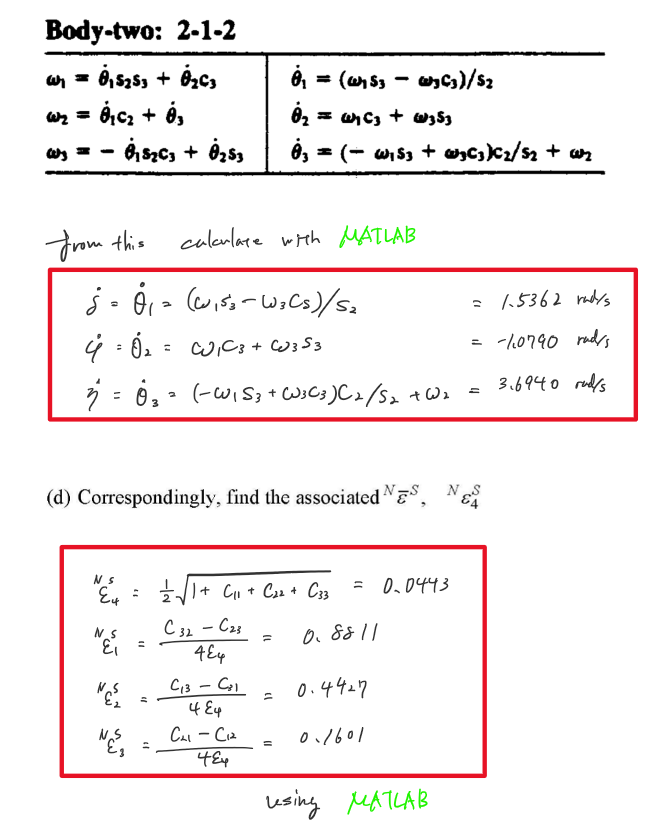 Body-two: 2-1-2
ω₁ = θ̇₁s₂s₃ + θ̇₂c₃
ω₂ = θ̇₁c₂ + θ̇₃
ω₃ = − θ̇₁s₂c₃ + θ̇₂s₃
θ̇₁ = (ω₁s₃ − ω₃c₃)/s₂
θ̇₂ = ω₁c₃ + ω₃s₃
θ̇₃ = (− ω₁s₃ + ω₃c₃)c₂/s₂ + ω₂
from this calculate with MATLAB
δ̇ = θ̇₁ = (ω₁s₃ − ω₃Cs)/s₂ = 1.5362 rad/s
φ̇ = θ̇₂ = ω₁C₃ + ω₃S₃ = -1.0790 rad/s
η̇ = θ̇₃ = (-ω₁S₃ + ω₃C₃)C₂/S₂ + ω₂ = 3.6940 rad/s
(d) Correspondingly, find the associated ᴺε̄ˢ, ᴺε₄ˢ
ᴺε₄ˢ = ½√(1 + C₁₁ + C₂₂ + C₃₃) = 0.0443
ᴺε₁ˢ = (C₃₂ − C₂₃)/4ε₄ = 0.8811
ᴺε₂ˢ = (C₁₃ − C₃₁)/4ε₄ = 0.4427
ᴺε₃ˢ = (C₂₁ − C₁₂)/4ε₄ = 0.1601
using MATLAB